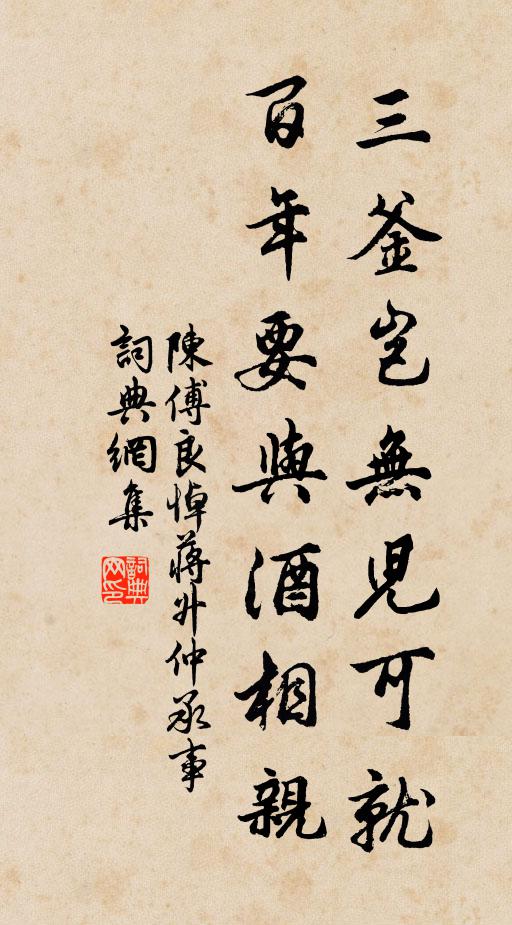 三釜豈無兒可就
百年要與酒相親
陳傅良悼蔣升仲承事
詞典網集
詞典網印